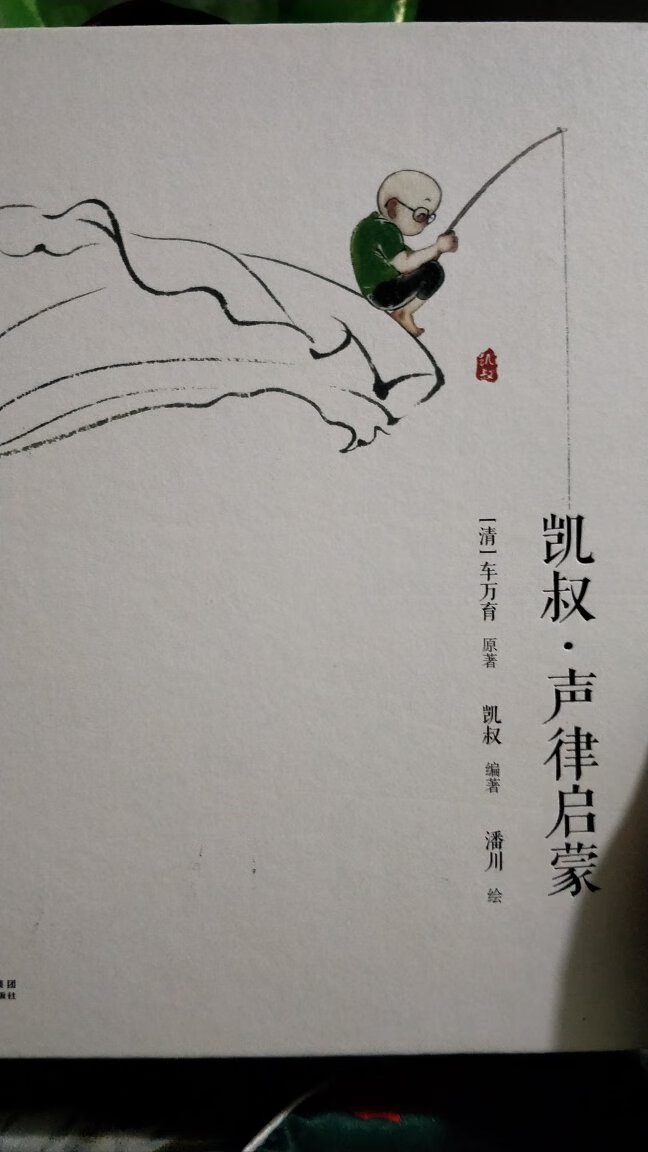 凯叔·声律启蒙
[清]车万育 原著 凯叔 编著 潘川 绘
凯叔
团
版社